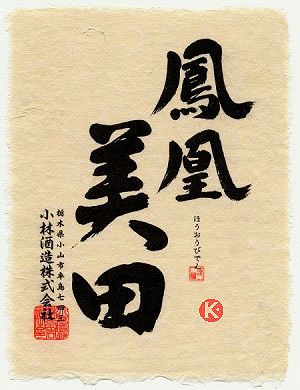 鳳凰
美田
ほうおうびでん
栃木県小山市卒島七四三
小林酒造株式会社
K